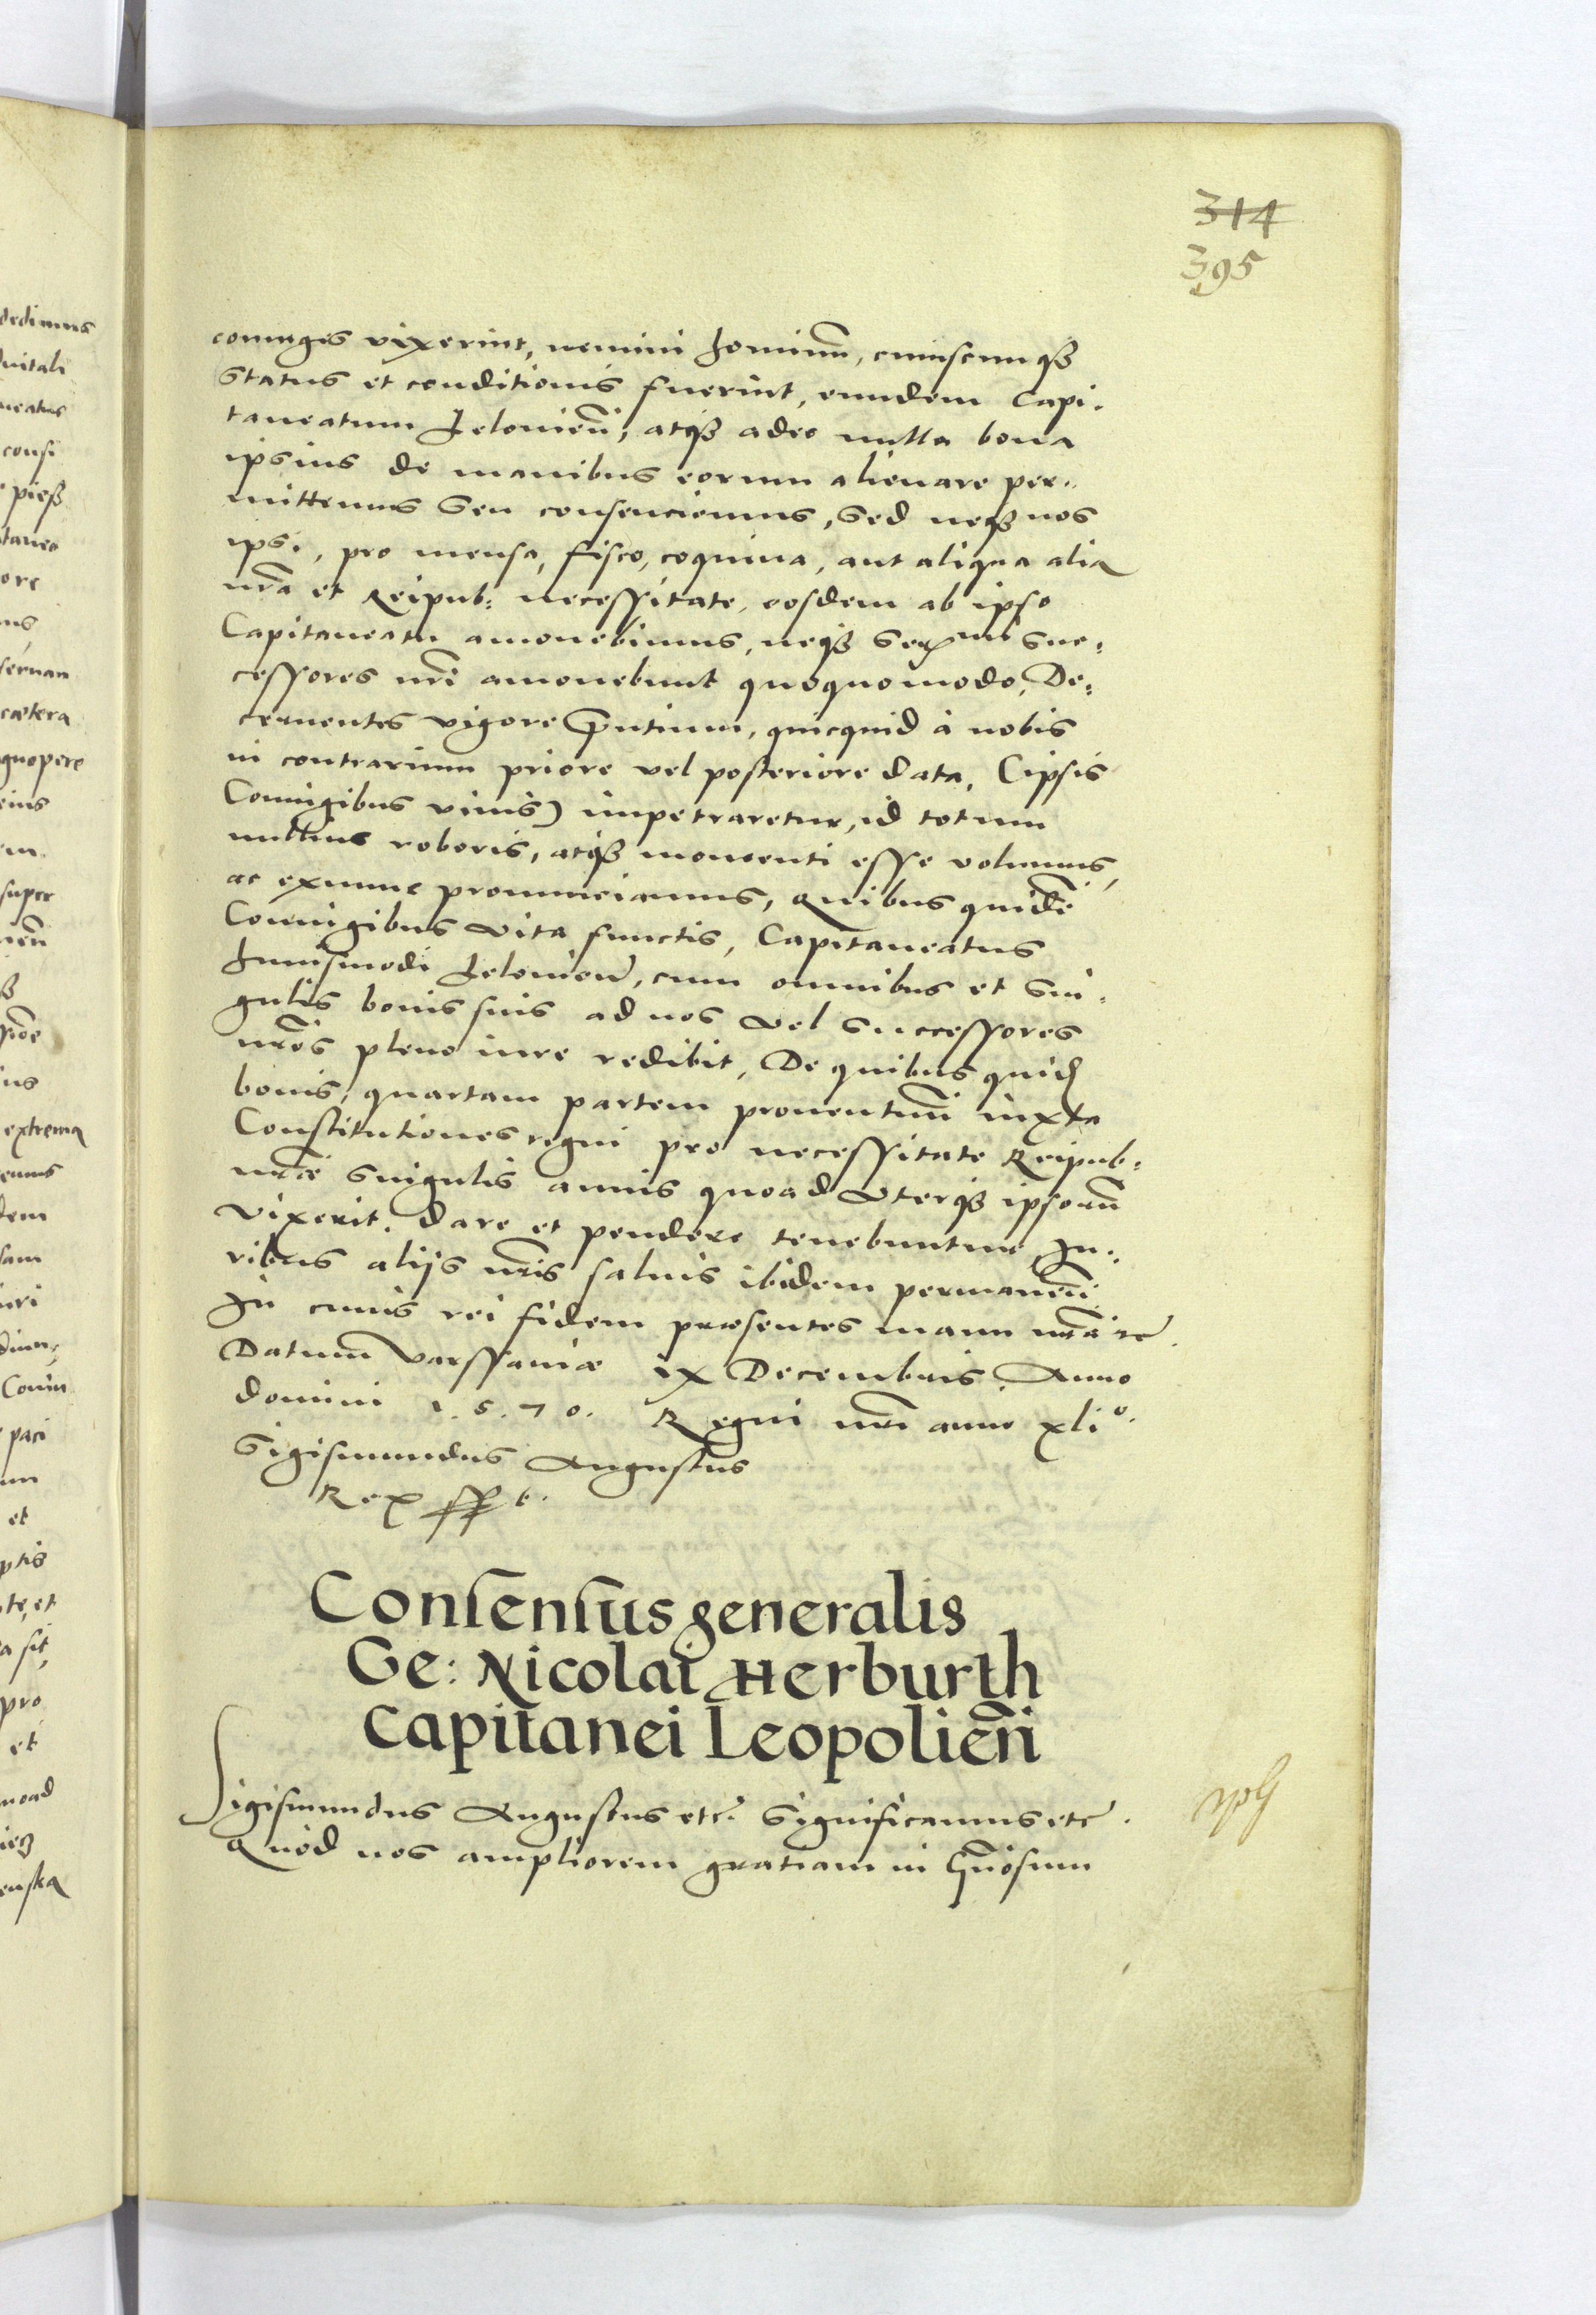 314
395
coniuges vixerint, nemini hominū, cuiuscunqȝ
status et conditionis fuerint, eundem Capi-
taneatum Jelonieñ, atqȝ adeo nulla bona
ipsius de manibus eorum alienare per-
mittemus seu consenciemus, sed neqȝ nos
ipsi, pro mensa, fisco, coquina, aut aliqua alia
nrã et Reipub: necessitate, eosdem ab ipso
Capitaneatu amouebimus, neqȝ Serᵐⁱ suc-
cessores nrĩ amouebunt quoquomodo, De-
cernentes vigore p̃ntium, quicquid à nobis
in contrarium priore vel posteriore data, (ipsis
Coniugibus viuis) impetraretur, id totum
nullius roboris, atqȝ momenti esse volumus,
ac exnunc pronunciamus, Quibus quidẽ
Coniugibus vita functis, Capitaneatus
huiusmodi Jelonieñ, cum omnibus et sin-
gulis bonis suis ad nos vel successores
nrõs pleno iure redibit, De quibus quid
bonis, quartam partem prouentuũ iuxta
Constitutiones regni pro necessitate Reipub:
nrãe singulis annis quoad vterqȝ ipsorũ
vixerit, dare et pendere tenebuntur, Ju-
ribus alijs nrĩs saluis ibidem permaneñ.
In cuius rei fidem præsentes manu nrã etc̃.
Datum Varssauiæ ix Decembris Anno
domini 1.5.70. Regni nrĩ anno xliº.
Sigismundus Augustus
Rex sst.
Consensus generalis
Ge: Nicolai Herburth
Capitanei Leopolieñ
Sigismundus Augustus etc̃. Significamus etc̃.
Quòd nos ampliorem gratiam in Gñosum